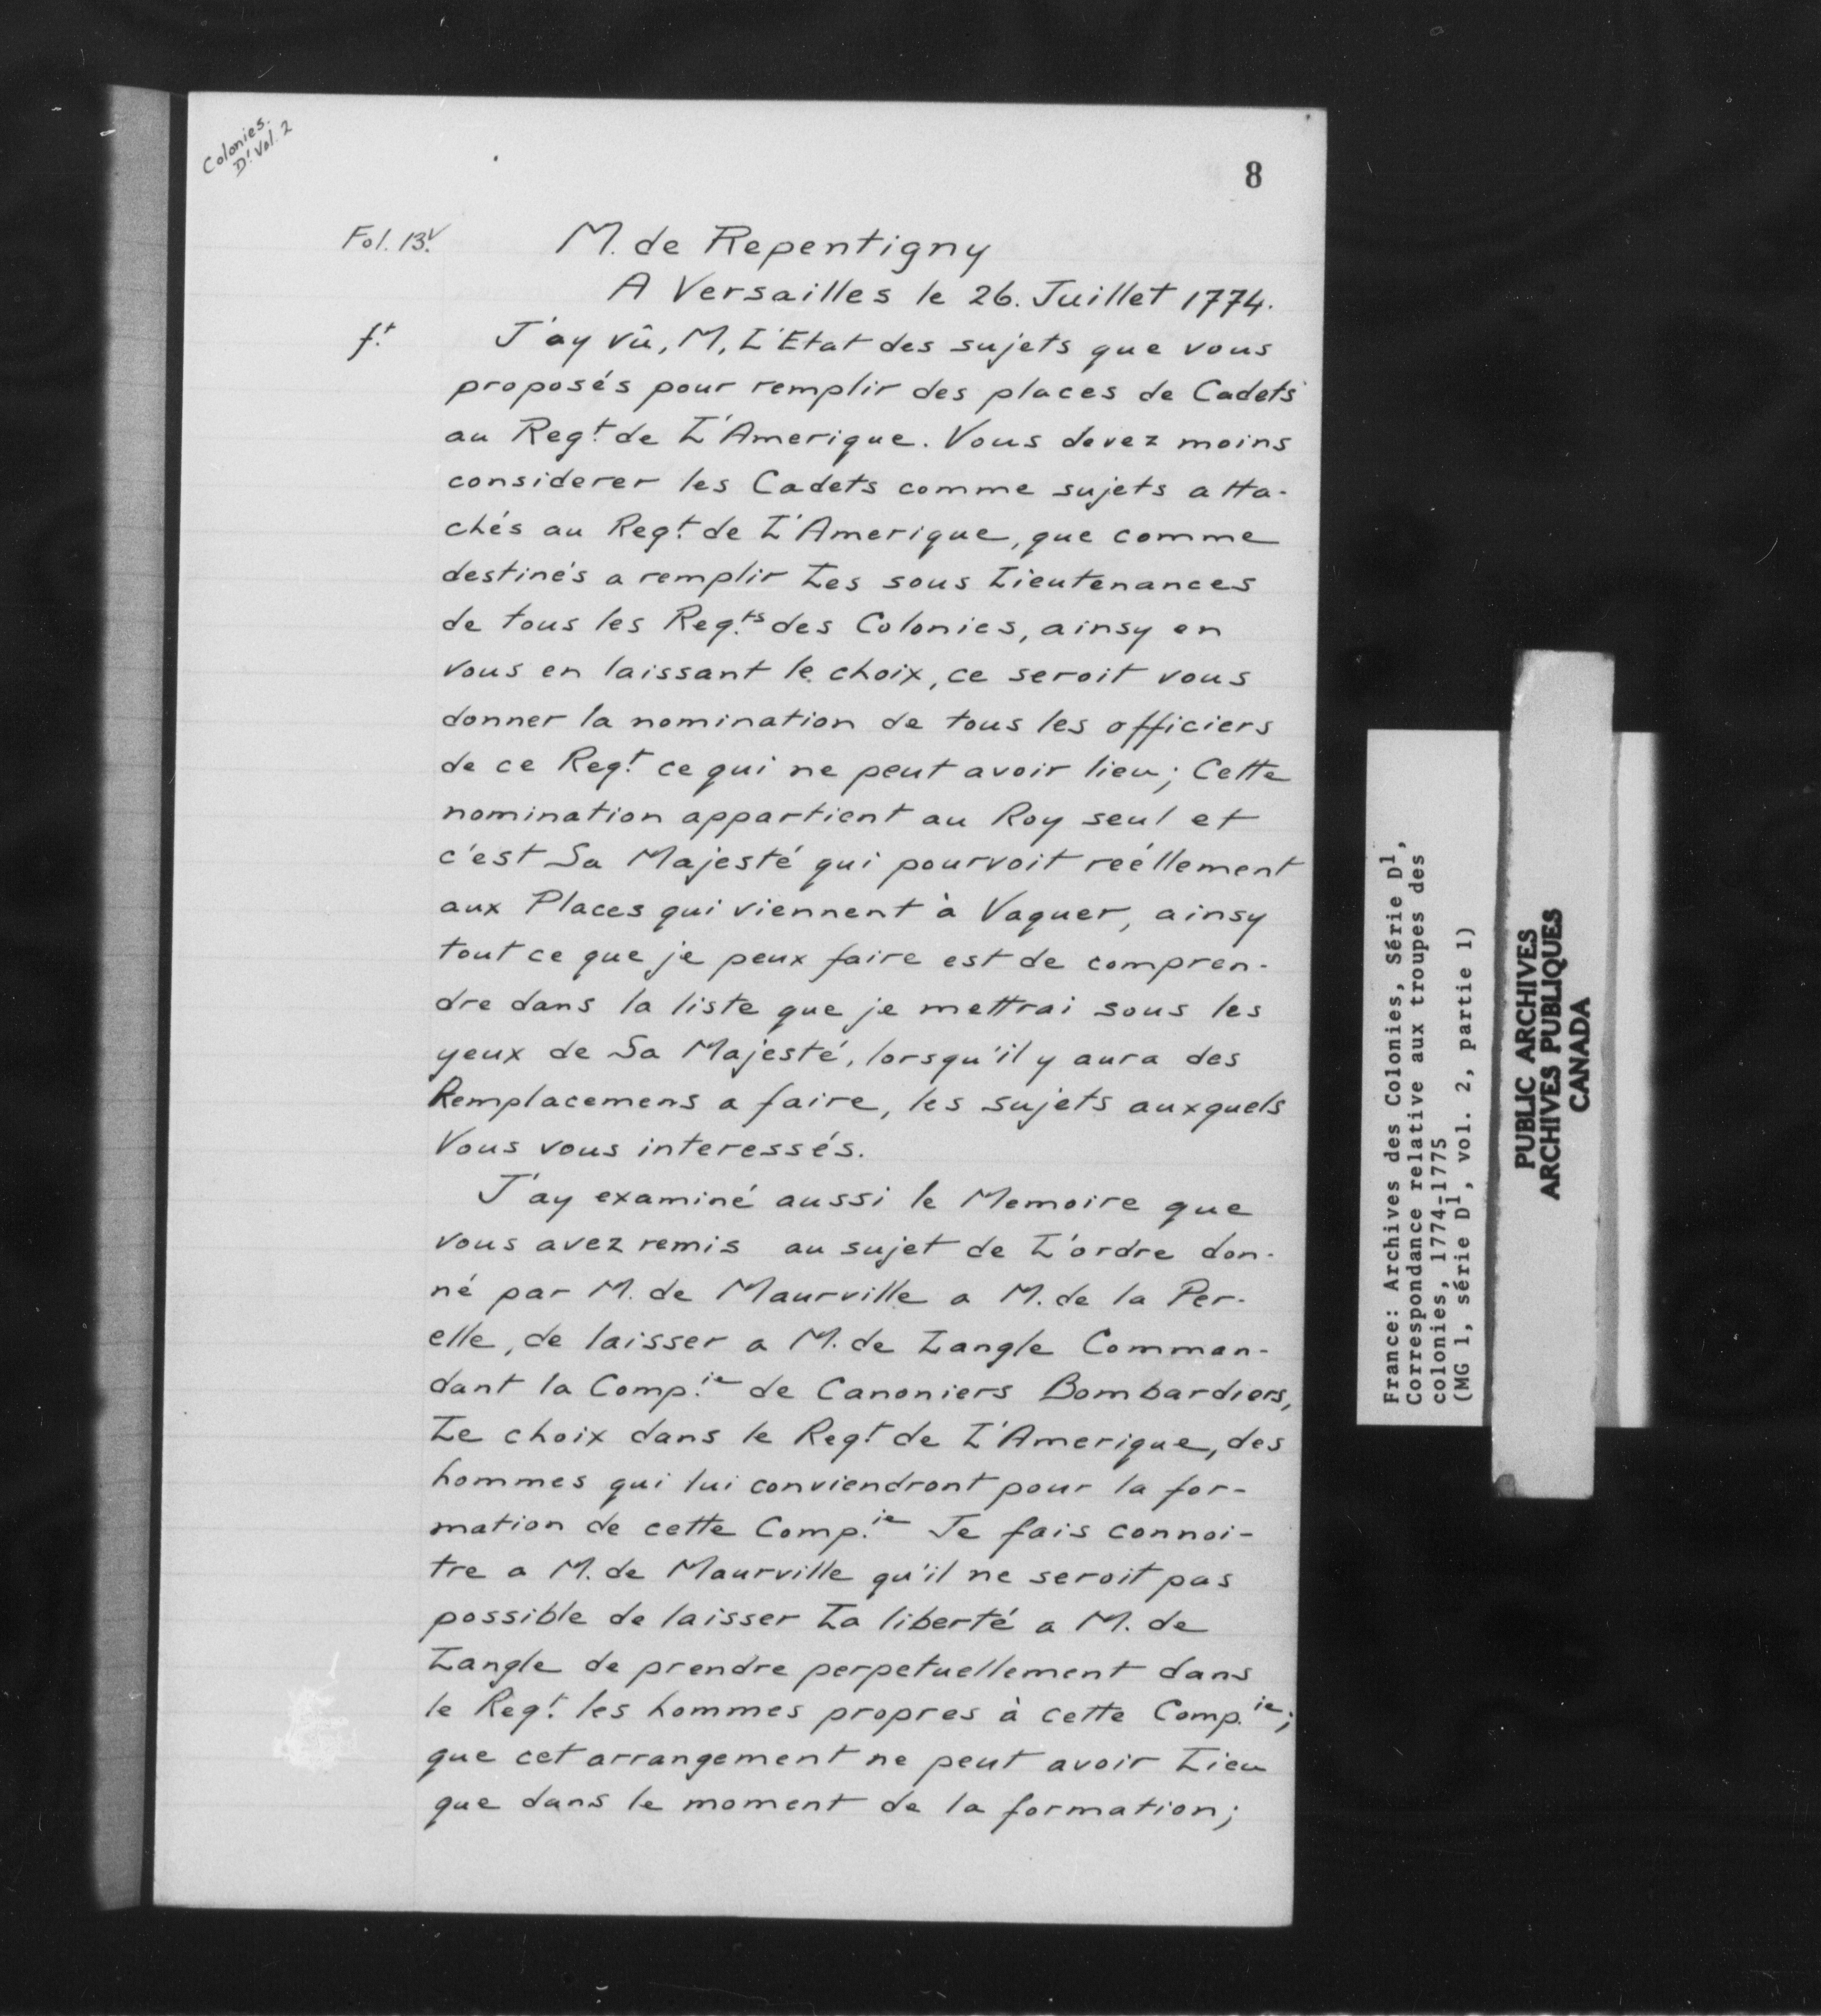 Colonies.
D! Vol. 2
8
Fol. 13v.
M. de Repentigny
A Versailles le 26. Juillet 1774.
f.t
J'ay vû, M, L'Etat des sujets que vous
proposés pour remplir des places de Cadets
au Reg.t de L'Amerique. Vous devez moins
considerer les Cadets comme sujets atta-
chés au Reg.t de L'Amerique, que comme
destinés a remplir Les sous Lieutenances
de tous les Reg.ts des Colonies, ainsy en
vous en laissant le choix, ce seroit vous
donner la nomination de tous les officiers
de ce Reg.t ce qui ne peut avoir lieu; Cette
nomination appartient au Roy seul et
c'est Sa Majesté qui pourvoit reéllement
aux Places qui viennent à Vaquer, ainsy
tout ce que je peux faire est de compren-
dre dans la liste que je mettrai sous les
yeux de Sa Majesté, lorsqu'il y aura des
Remplacemens a faire, les sujets auxquels
Vous vous interessés.
J'ay examiné aussi le Memoire que
vous avez remis au sujet de L'ordre don-
né par M. de Maurville a M. de la Per-
elle, de laisser a M. de Langle Comman-
dant la Comp.ie de Canoniers Bombardiers,
Le choix dans le Reg.t de L'Amerique, des
hommes qui lui conviendront pour la for-
mation de cette Comp.ie Je fais connoi-
tre a M. de Maurville qu'il ne seroit pas
possible de laisser La liberté a M. de
Langle de prendre perpetuellement dans
le Reg.t les hommes propres à cette Comp.ie;
que cet arrangement ne peut avoir Lieu
que dans le moment de la formation;
France: Archives des Colonies, Série D1,
Correspondance relative aux troupes des
colonies, 1774-1775
(MG 1, série D1, vol. 2, partie 1)
PUBLIC ARCHIVES
ARCHIVES PUBLIQUES
CANADA